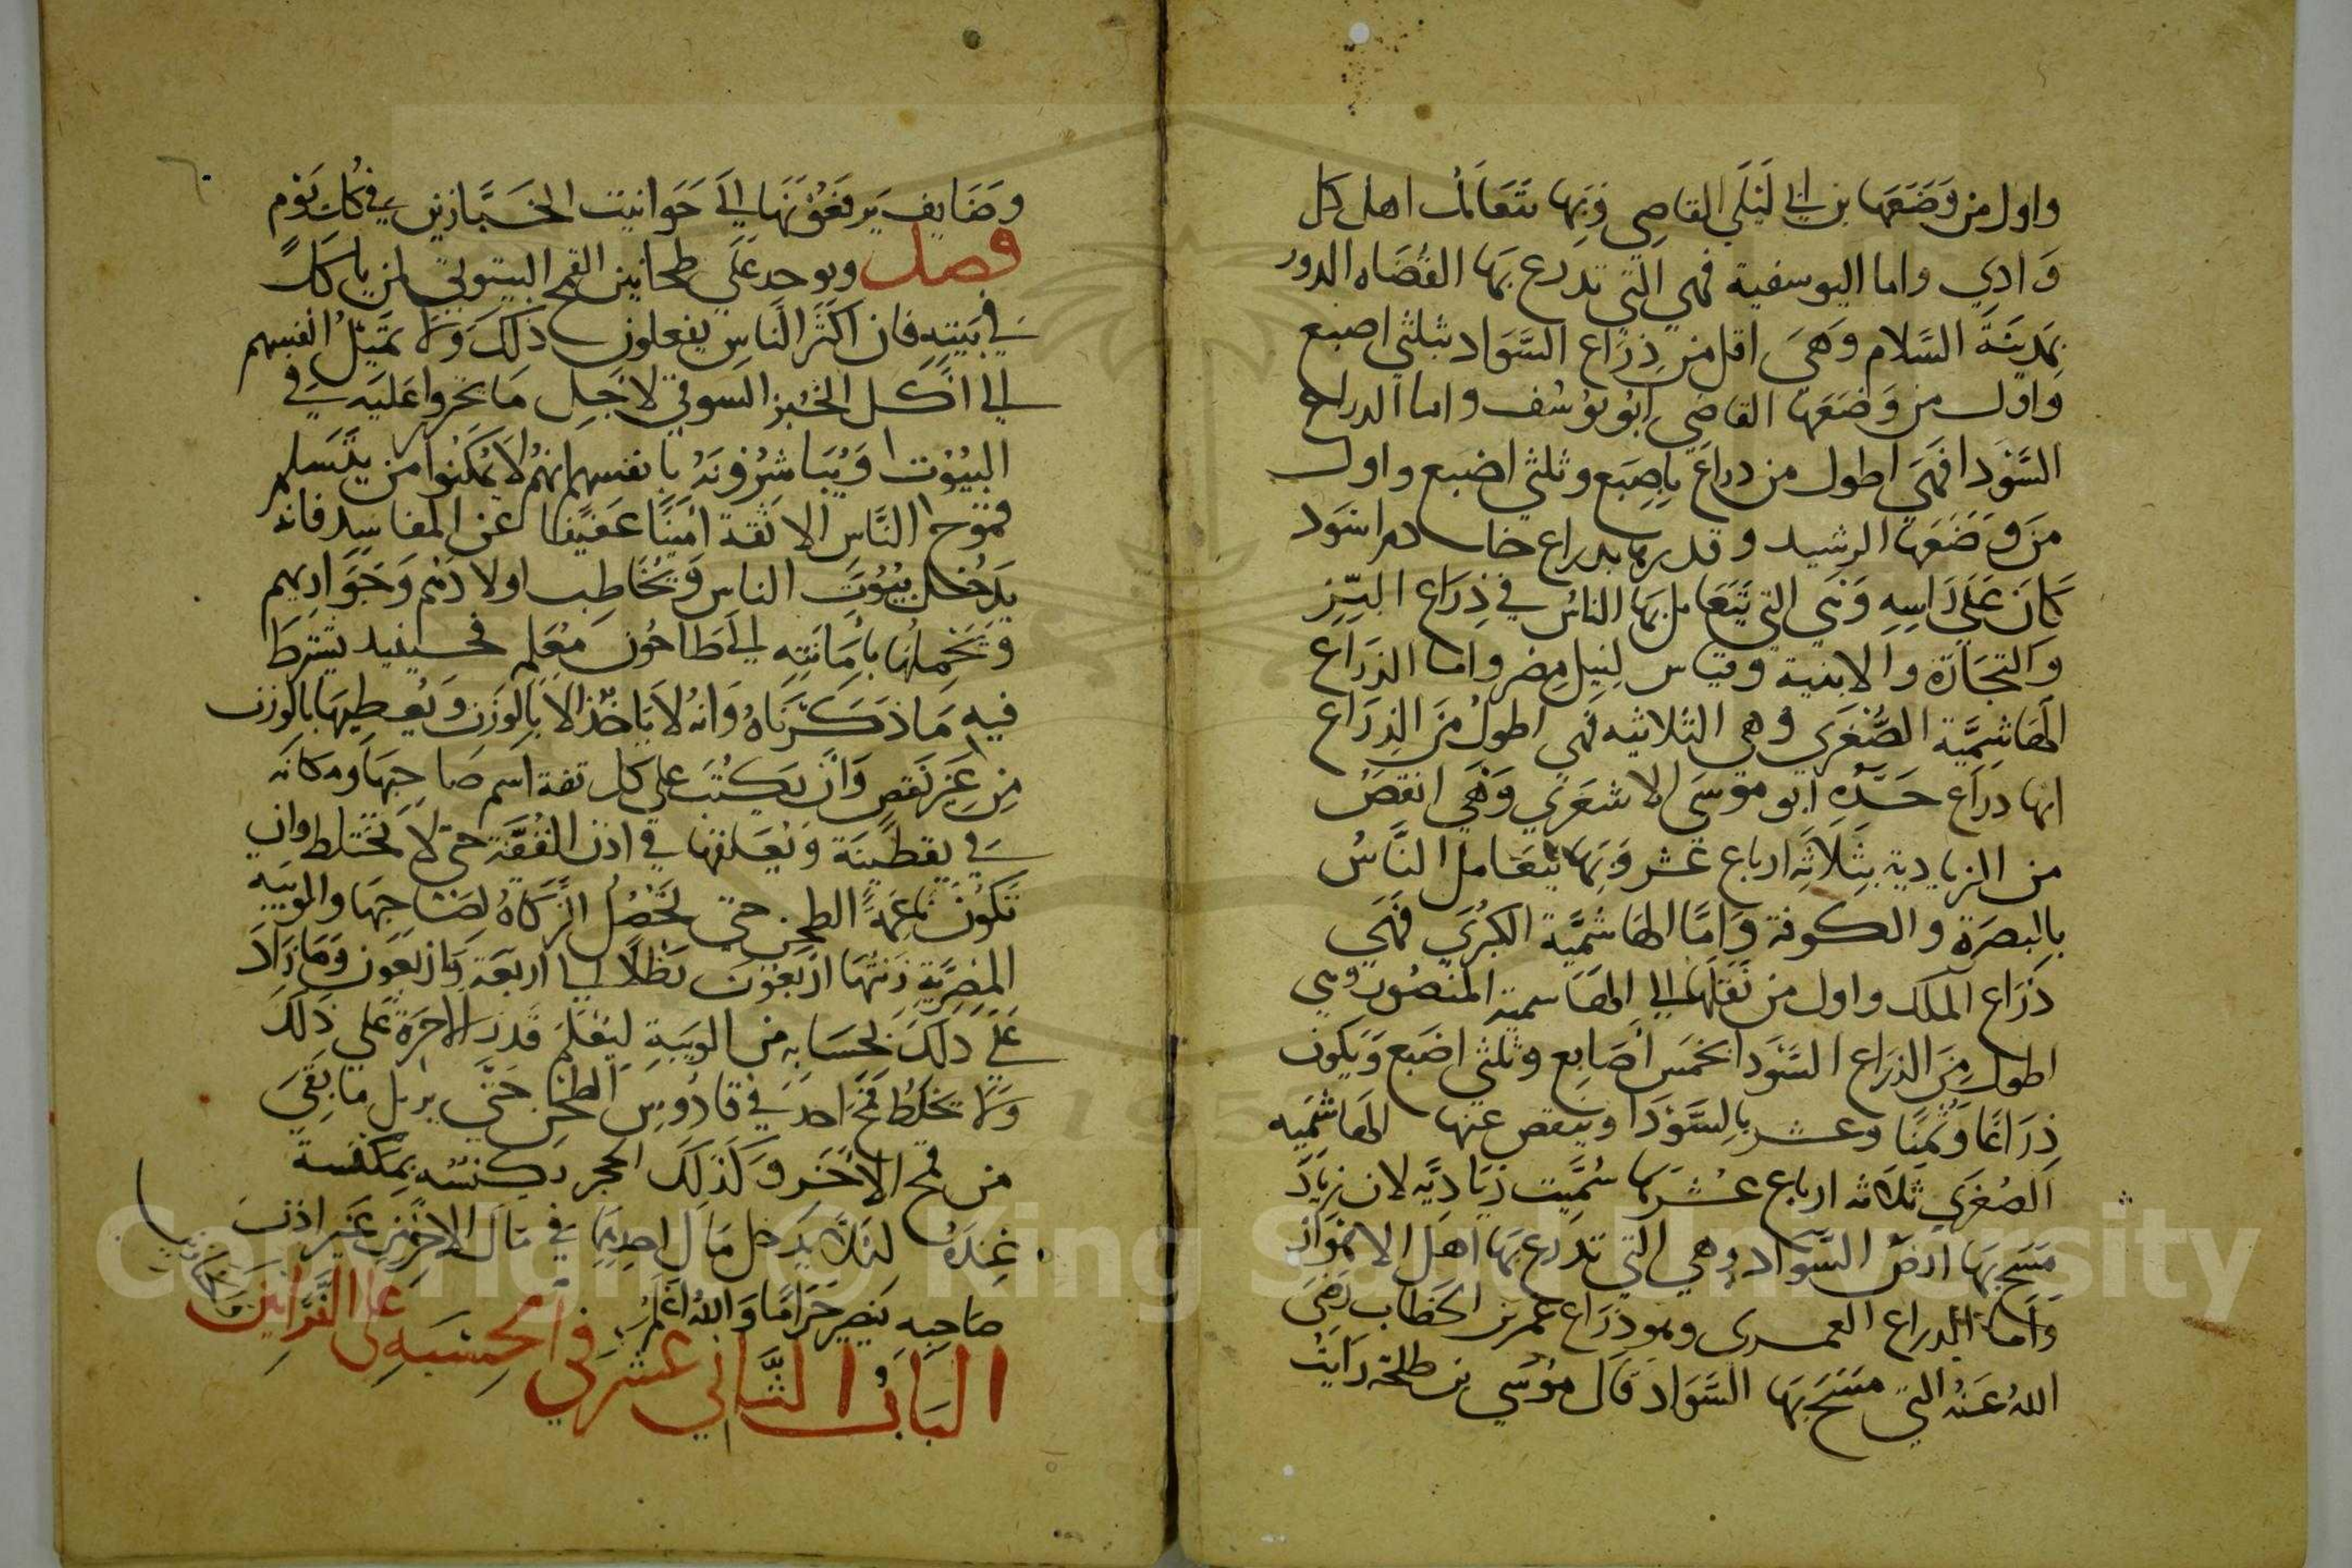 واول من وَضَعَها بن ابي لَيْلَي القاضِي وَبِهَا يتَعَامَلُ اهل كل
وَادي واما اليوسفية فهي التي تدرع بهَا القُضَاه الدور
بمَدِينَة السَّلام وَهيَ اقل من ذِرَاع السَّوَاد بثلثي اصبع
وَاول من وَضعَهَا القاضِي ابُو يُوسُف واما الدراع
السَّوْدَا فهَي اطول من دراع بِاصبَع وثلثي اصْبع واول
مَن وَضَعَهَا الرشيد وقدرها بدراع خادم اسْوَد
كانَ عَلَي رَاسِهِ وَهَي التي يَتَعَامل بهَا الناسُ في ذِرَاع البَزِّ
والتجَارَة والابنية وقياس لِنِيل مِصْر واما الذرَاع
الهَاشِمِيَّة الصُّغرَي وهي الثلاثيه فهَي اطولُ مِنَ الذِرَاع
انها دراع حَدَّه ابو موسَى الاشعَرِي وَهَي انقصُ
من الزيادية بثَلاثَةِ ارباع عشر وَبِهَا يتعَامل النَّاسُ
بالبصرَة والكوفة وَامَّا الهَاشميَّة الكبرَي فَهَي
ذرَاع الملك واول من نقلها الي الهَاشمية المنصُور وهي
اطول مِنَ الذرَاع السَّوْدَا بخمس اصَابِع وثلثي اصْبَع وَيَكون
ذِرَاعًا وثمنًا وعشر بالسَّوْدَا وينقص عنها الهَاشميه
الصُغرَي ثلاثه ارباع عُشرهَا سُمِّيت زيَادِيَّه لان زيَادَ
مَسَح بهَا ارضَ السَّوَاد وهي التي تدرع بهَا اهل الاهْوَاز
وَاما الدراع العمري وهو ذِرَاع عمر بن الخطاب رَضِيَ
اللهُ عَنْهُ التي مَسَحَ بهَا السَّوَاد قال مُوسَي بن طلحَة رَايتُ
وضَايف يرفعُونَهَا الي حَوَانيت الخبَّازين في كل يَوْم
فصل ويوخد عَلَي طحانين القمح البيتوتي لمن ياكل
في بَيتِهِ فان اكثر النَّاس يفعلون ذلكَ وَلا تمَيْلُ انفسهم
الي اكل الخُبز السوقي لاجل مَا عَليه في
البيُوت وَيُبَاشرُونهُ بانفسهم انهُم لا يُمَكنوا من يتَسلم
قموح النَّاس الا ثقة امينًا عَفيفا عن المفاسِد فانه
يَدخل بيُوتَ الناس وَيُخَاطِب اولادهم وَجَوَاريهم
وَيَحْملهَا بامَانته الي طاحُون مُعَلِم فحينيد يشترط
فيه مَا ذكرناهُ وَانه لا يَاخذ الا بالوَزن وَيُعطِيهَا بالوزن
مِن غير نقص وَان يكتُبَ علي كل قفة اسم صَاحِبهَا ومكانه
في يقطينَة وَيُعَلقها في اذن القُفَّة حَتي لا تختلط وان
تَكُون ناعمة الطحن حتي تحْصُل الزكاةُ لِصَاحِبهَا والويبَه
المِصريَّة زِنتهَا اربعُون رَطلا الي اربعَة وَاربعُون وَمَا زَادَ
عَلَي ذلكَ بحسَابه من الويبَة ليَعْلم قدرَ الاجرَة عَلي ذلكَ
وَلا يخلط قمح احد في قادُوس الطحن حَتَّي ينزل مَا بقيَ
من قمح الاخَر وَكذلكَ الحجر يكنسُه بمكنسة
عِندَهُ لئلا يَدخل مَال احدهمَا في مَال الاخر من غير اذن
صَاحِبه يَصِير حَرَامًا وَاللهُ اعْلمُ
البَابُ الثَّاني عشر في الحِسْبَه على الفرَّانين